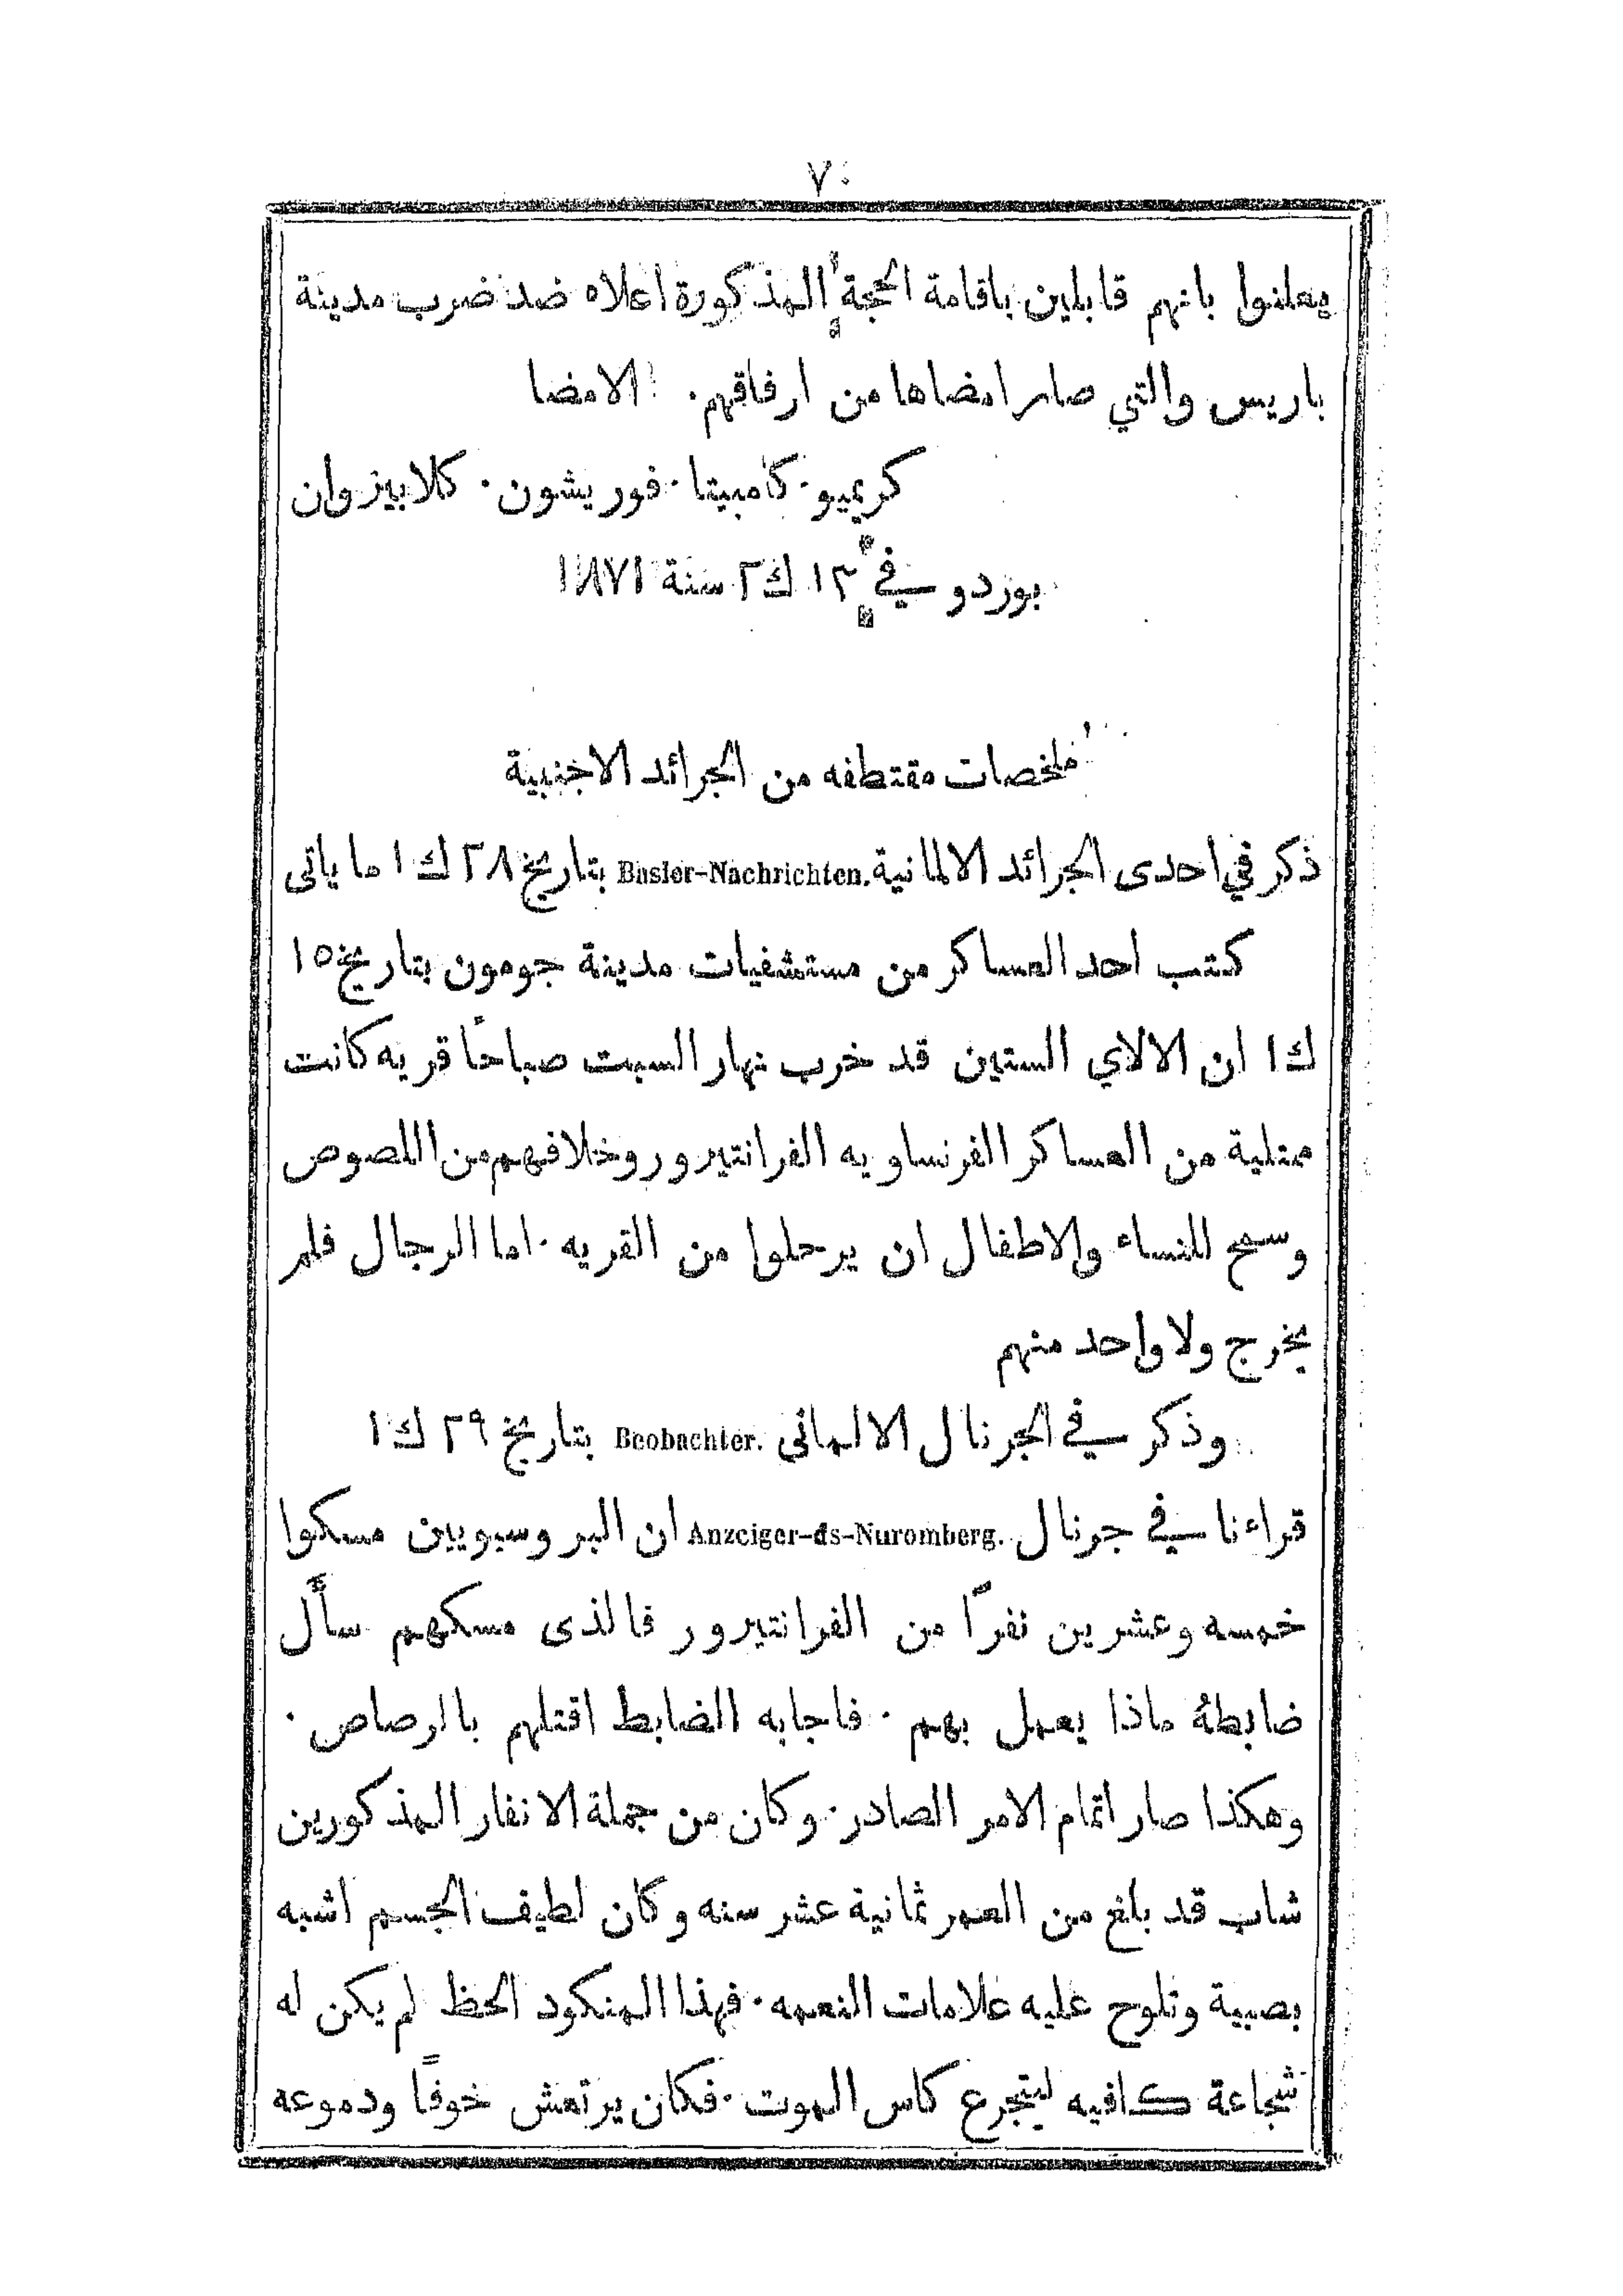 ٧٠
يعلنوا بانهم قابلين باقامة الحجة المذكورة اعلاه ضد ضرب مدينة
باريس والتي صار امضاها من ارفاقهم. الامضا
كريميو. كامبيتا. فوريشون. كلابيزوان
بوردو في ١٣ ك٢ سنة ١٨٧١
ملخصات مقتطفه من الجرائد الاجنبية
ذكر في احدى الجرائد الالمانية Basler-Nachrichten. بتاريخ ٢٨ ك١ ما ياتى
كتب احد العساكر من مستشفيات مدينة جومون بتاريخ ١٥
ك١ ان الالاي الستين قد خرب نهار السبت صباحًا قريه كانت
ممتلية من العساكر الفرنساويه الفرانتيرور وخلافهم من اللصوص
وسمح للنساء والاطفال ان يرحلوا من القريه. اما الرجال فلم
يخرج ولا واحد منهم
وذكر في الجرنال الالمانى Beobachter. بتاريخ ٢٩ ك١
قراءنا في جرنال Anzeiger-ds-Nuromberg. ان البروسيويين مسكوا
خمسه وعشرين نفرًا من الفرانتيرور فالذى مسكهم سأل
ضابطهُ ماذا يعمل بهم. فاجابه الضابط اقتلهم بالرصاص.
وهكذا صار اتمام الامر الصادر. وكان من جملة الانفار المذكورين
شاب قد بلغ من العمر ثمانية عشر سنه وكان لطيف الجسم اشبه
بصبية وتلوح عليه علامات النعمه. فهذا المنكود الحظ لم يكن له
شجاعة كافيه ليتجرع كاس الموت. فكان يرتعش خوفًا ودموعه